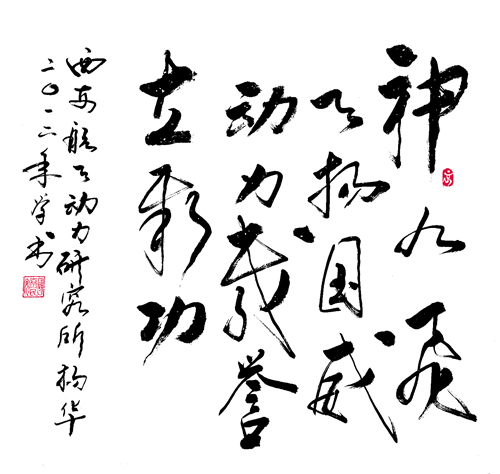 神九飞
天扬国威
动力载誉
立新功
西安航天动力研究所杨华
二〇一二年学书